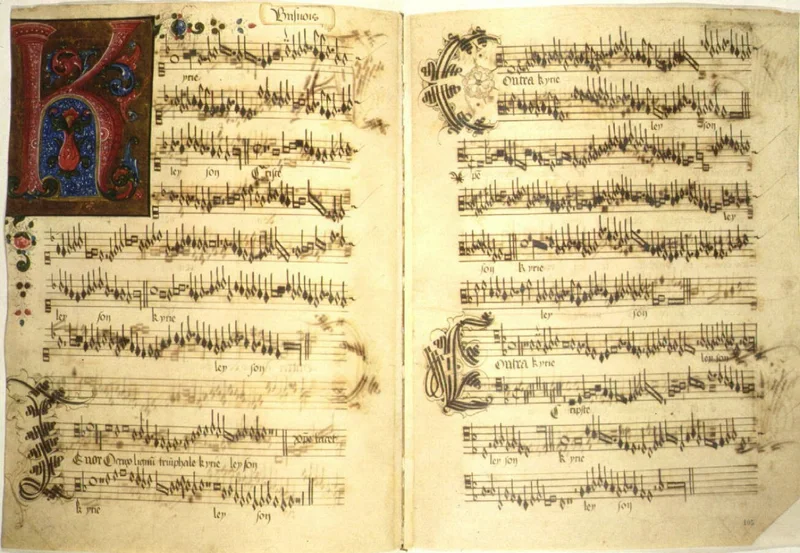 Busnois
K
yrie
ley son Criste
ley son kyrie
ley son
xp̄e tacet
Tenor kyrie leyson
kyrie
ley son
Contra kyrie
ley son
Xp̄e
ley
son kyrie
ley son
Contra kyrie
ley son
Criste
ley son kyrie
ley son